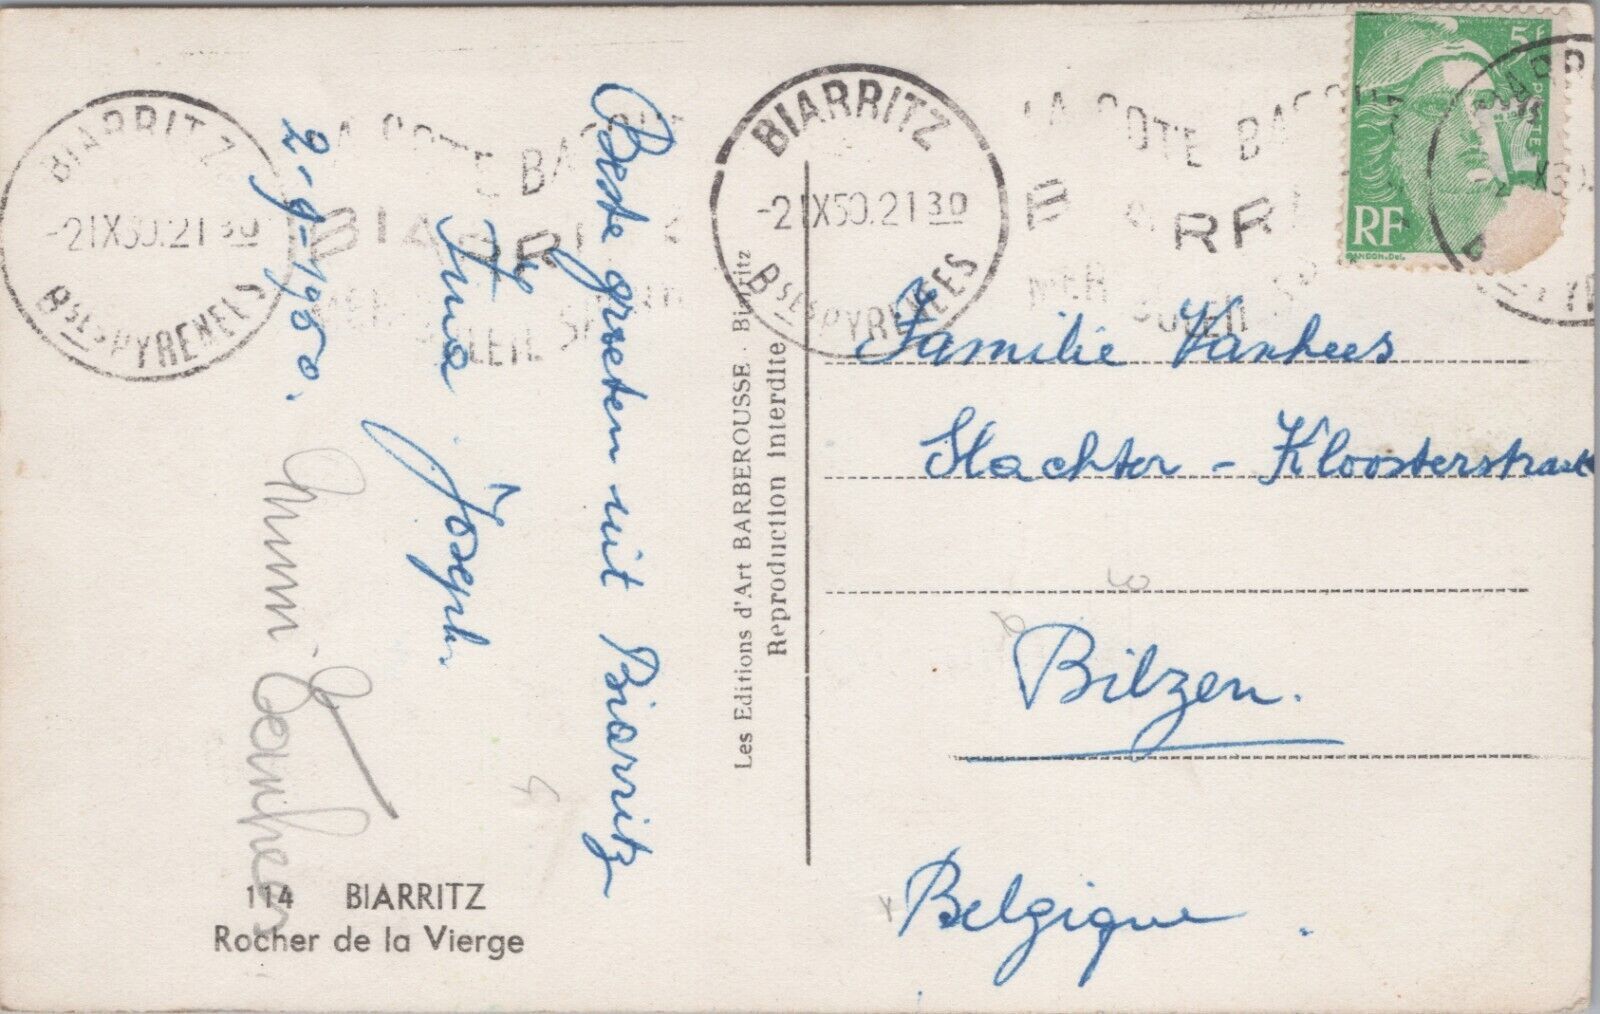 BIARRITZ
-2 IX 50.21 30
BSES PYRENEES
LA COTE BASQUE
BIARRITZ
MER SOLEIL
2-9-1950.
Beste groeten uit Biarritz
Joseph.
114 BIARRITZ
Rocher de la Vierge
Les Editions d'Art BARBEROUSSE - Biarritz
Reproduction interdite
BIARRITZ
-2 IX 50.21 30
BSES PYRENEES
LA COTE BASQUE
MER SOLEIL
5F
POSTES
RF
GANDON.DEL
Familie Vanhees
Slachter - Kloosterstraat
Bilzen.
Belgique.